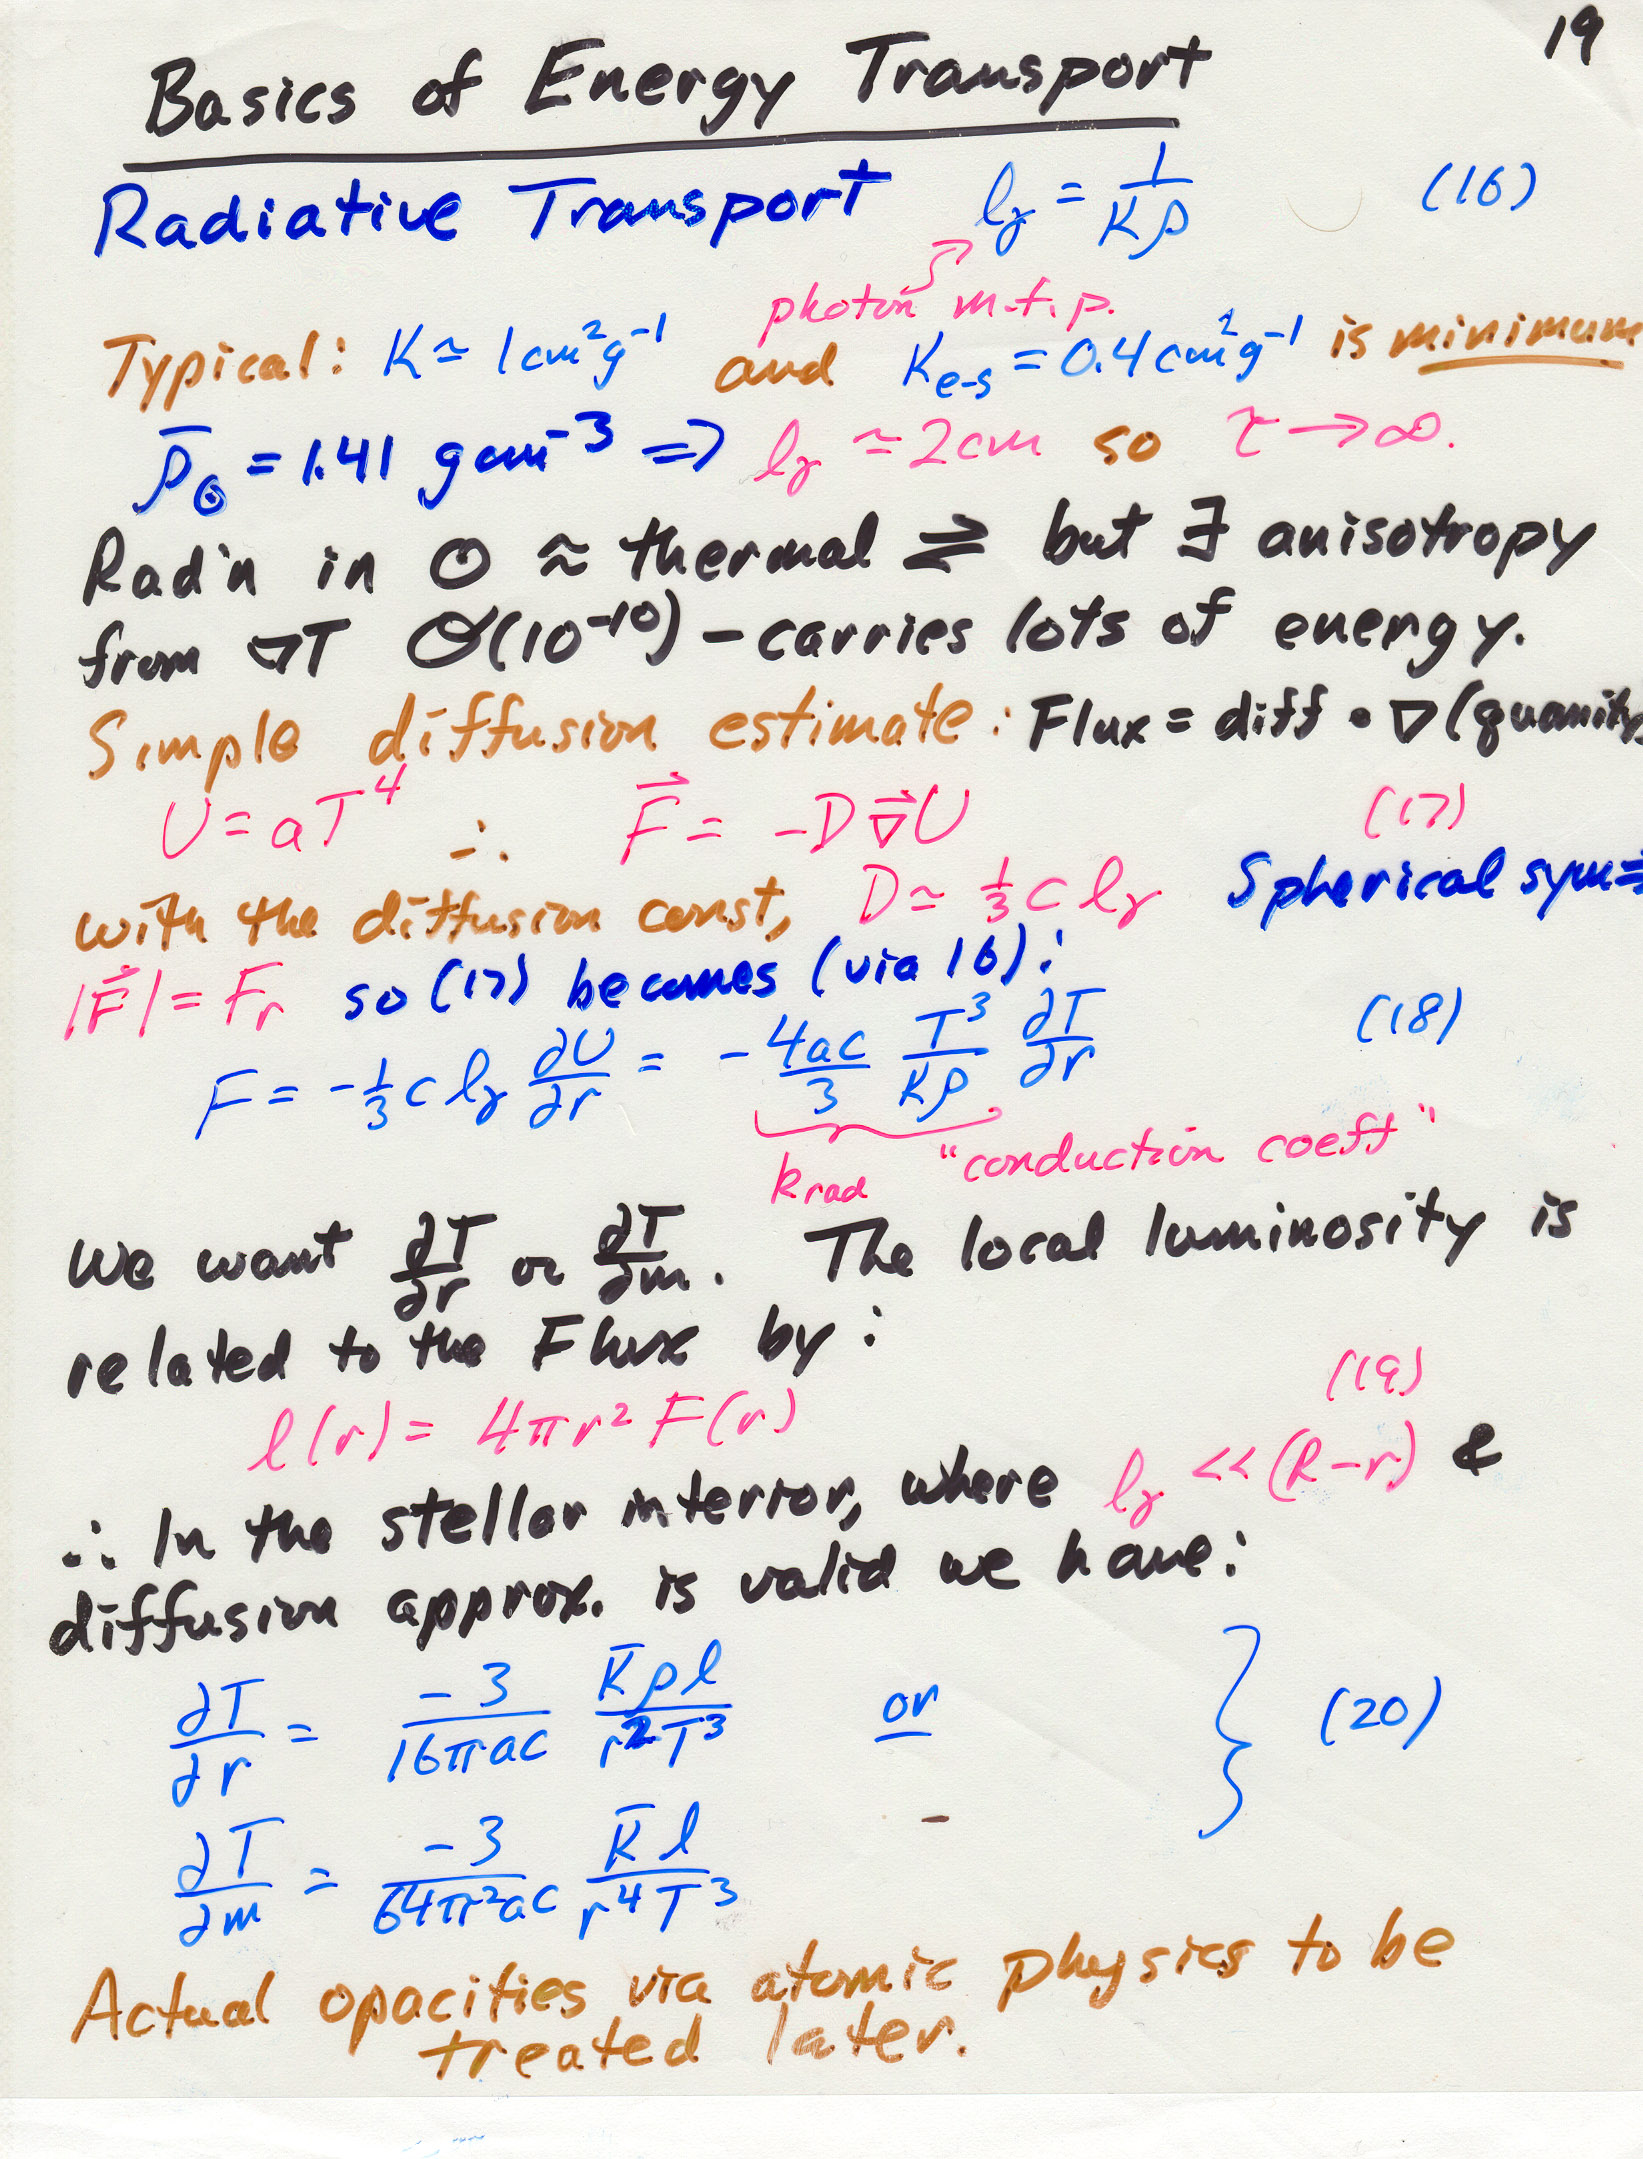 19
Basics of Energy Transport
Radiative Transport ℓᵧ = 1/(κρ) (16)
photon m.f.p.
Typical: κ ≃ 1 cm² g⁻¹ and κₑ₋ₛ = 0.4 cm² g⁻¹ is minimum
ρ̄_⊙ = 1.41 g cm⁻³ ⇒ ℓᵧ ≃ 2 cm so τ → ∞.
Rad'n in ⊙ ≈ thermal ⇌ but ∃ anisotropy
from ∇T O(10⁻¹⁰) – carries lots of energy.
Simple diffusion estimate: Flux = diff • ∇(quanity)
U = aT⁴ ∴ F⃗ = -D∇⃗U (17)
with the diffusion const, D ≃ ⅓ c ℓᵧ Spherical sym ⇒
|F⃗| = Fᵣ so (17) becomes (via 16):
F = -⅓ c ℓᵧ ∂U/∂r = - (4ac/3) (T³/(κρ)) ∂T/∂r (18)
k_rad "conduction coeft"
We want ∂T/∂r or ∂T/∂m. The local luminosity is
related to the Flux by:
ℓ(r) = 4πr² F(r) (19)
∴ In the stellar interior, where ℓᵧ << (R-r) &
diffusion approx. is valid we have:
∂T/∂r = (-3/(16πac)) (κ̄ρℓ/(r²T³)) or
(20)
∂T/∂m = (-3/(64π²ac)) (κ̄ℓ/(r⁴T³))
Actual opacities via atomic physics to be
treated later.